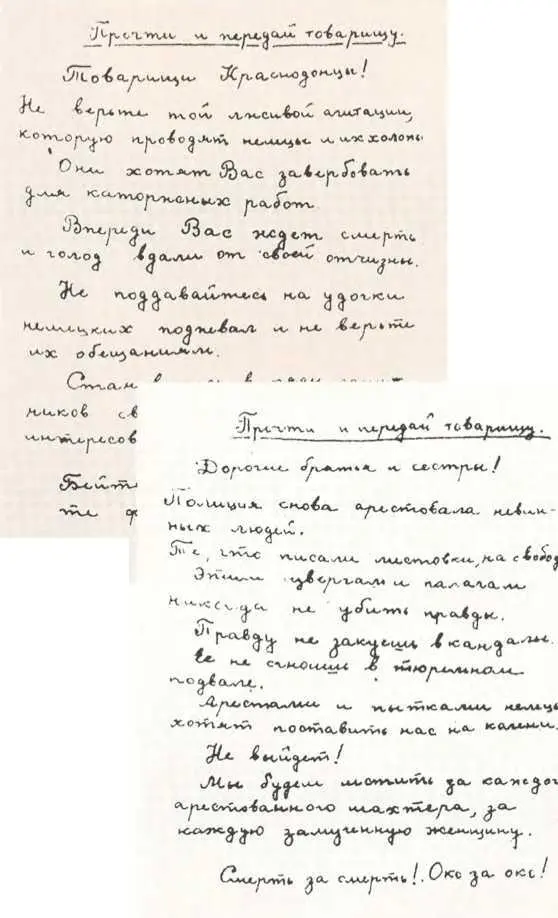 Прочти и передай товарищу.
Товарищи Краснодонцы!
Не верьте той лживой агитации,
которую проводят немцы и их холопы
Они хотят Вас завербовать
для каторжных работ.
Впереди Вас ждет смерть
и голод вдали от своей отчизны.
Не поддавайтесь на удочки
немецких подпевал и не верьте
их обещаниям.
ников
интересов
Прочти и передай товарищу.
Дорогие братья и сестры!
Полиция снова арестовала невин-
ных людей.
Те, что писали листовки, на свобод
Этим извергам и палачам
никогда не убить правды.
Правду не закуешь в кандалы.
Ее не сгноишь в тюремном
подвале.
Арестами и пытками немцы
хотят поставить нас на колени.
Не выйдет!
Мы будем мстить за каждог
арестованного шахтера, за
каждую замученную женщину.
Смерть за смерть! Око за око!